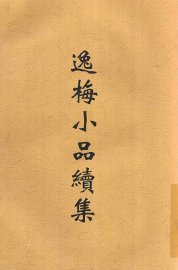 逸梅小品續集